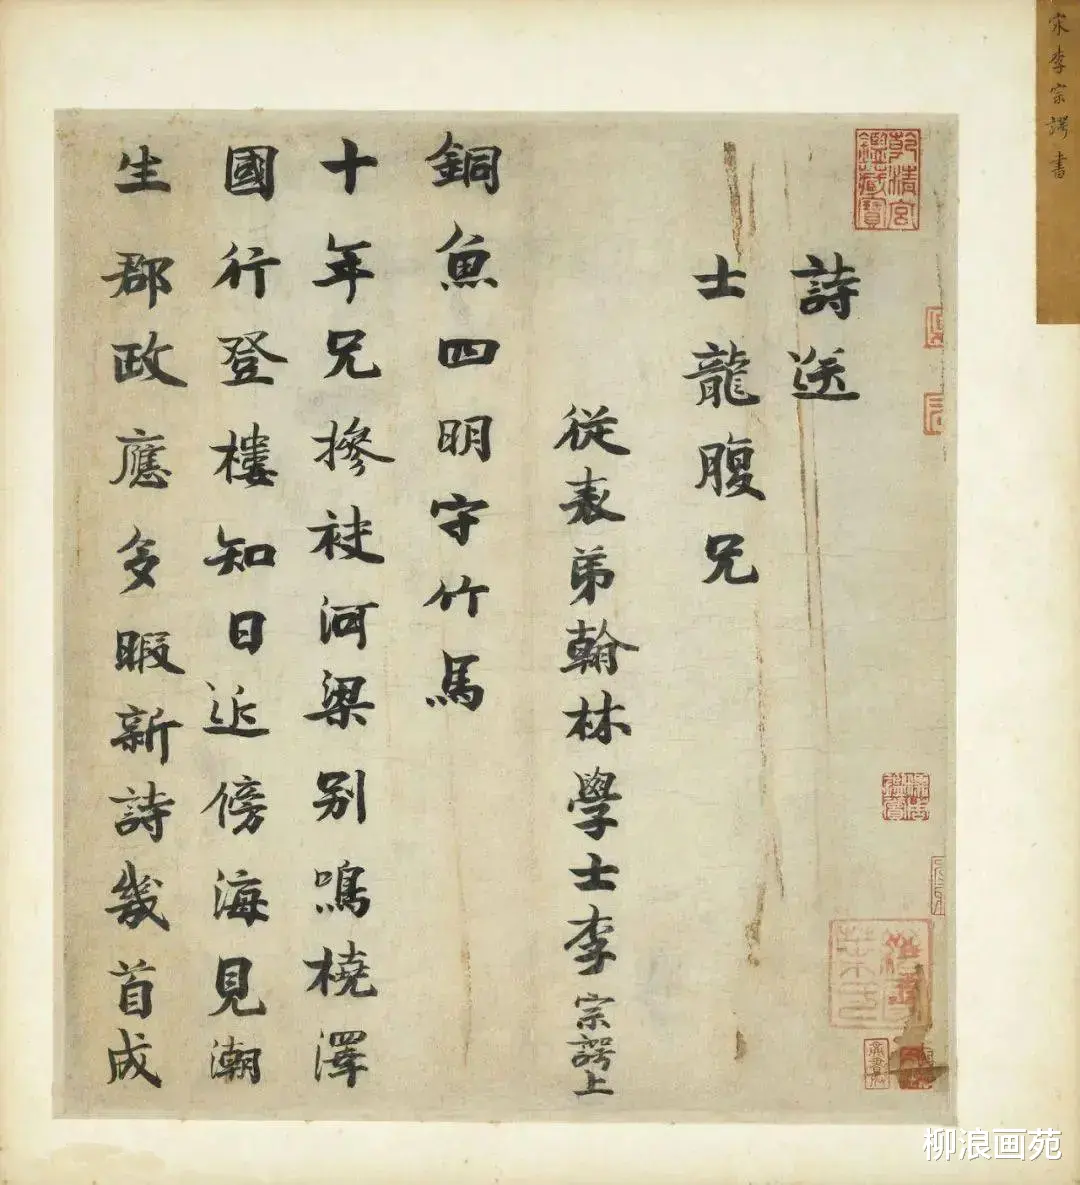 宋李宗諤書
乾清宮鑑藏寶
詩送
士龍腹兄
從表弟翰林學士李宗諤上
銅魚四明守竹馬
十年兄摻袂河梁別鳴橈澤
國行登樓知日近傍海見潮
生郡政應多暇新詩幾首成
柳浪画苑